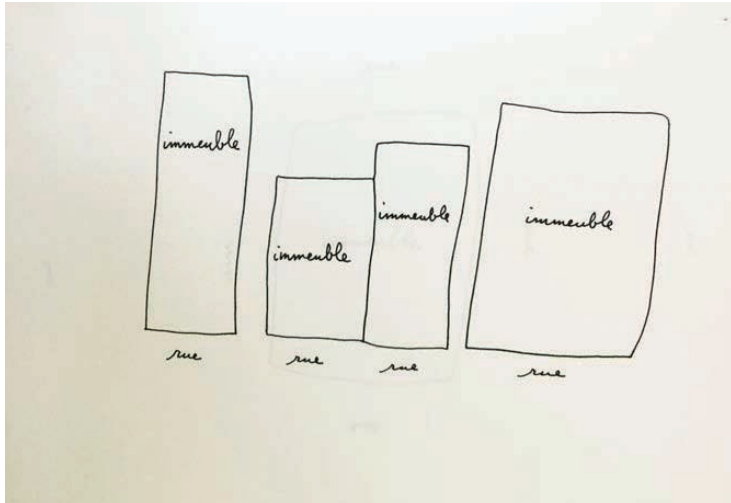 immeuble
immeuble
immeuble
immeuble
rue
rue
rue
rue